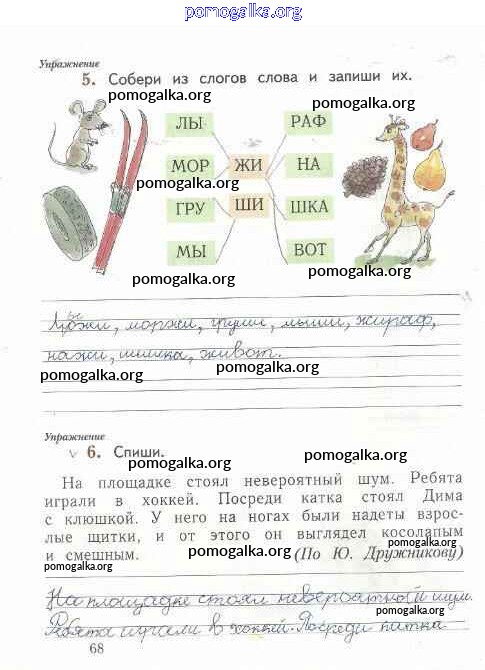 pomogalka.org
Упражнение
5. Собери из слогов слова и запиши их.
pomogalka.org
pomogalka.org
ЛЫ
РАФ
МОР
ЖИ
НА
pomogalka.org
ГРУ
ШИ
ШКА
МЫ
ВОТ
pomogalka.org
pomogalka.org
Лыжи, моржи, груши, мыши, жираф,
нажи, шишка, живот.
pomogalka.org
pomogalka.org
Упражнение
v 6. Спиши.
pomogalka.org
На площадке стоял невероятный шум. Ребята
играли в хоккей. Посреди катка стоял Дима
с клюшкой. У него на ногах были надеты взрос-
лые щитки, и от этого он выглядел косолапым
pomogalka.org
и смешным. (По Ю. Дружникову)
pomogalka.org
pomogalka.org
На площадке стоял невероятной шум.
pomogalka.org
Ребята играли в хоккей. Посреди катка
68